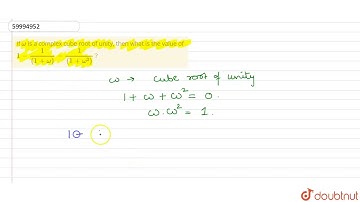 59994952
If ω is a complex cube root of unity, then what is the value of
1 - 1/(1 + ω) - 1/(1 + ω²) ?
ω → cube root of unity
1 + ω + ω² = 0.
ω.ω² = 1.
doubtnut